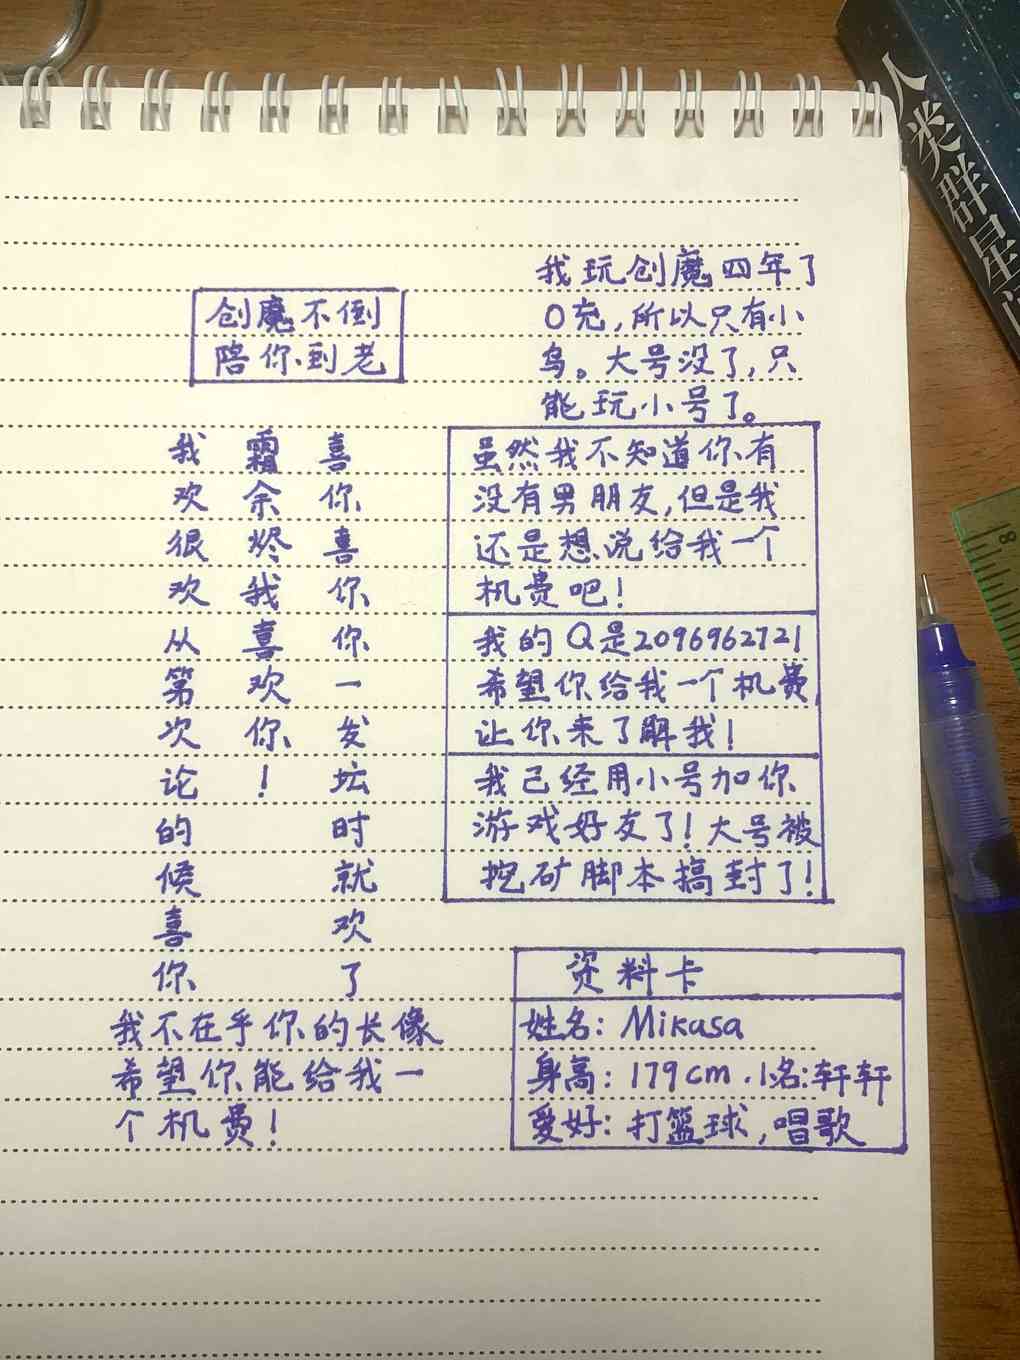 人类群星
我玩创魔四年了
0充,所以只有小
鸟。大号没了,只
能玩小号了。
创魔不倒
陪你到老
我 霜 喜
欢 余 你
很 烬 喜
欢 我 你
从 喜 你
第 欢 一
次 你 发
论 ! 坛
的 时
候 就
喜 欢
你 了
我不在乎你的长像
希望你能给我一
个机贵!
虽然我不知道你有
没有男朋友,但是我
还是想说给我一个
机贵吧!
我的Q是2096962721
希望你给我一个机贵,
让你来了解我!
我已经用小号加你
游戏好友了!大号被
挖矿脚本搞封了!
资料卡
姓名:Mikasa
身高:179cm.小名:轩轩
爱好:打篮球,唱歌
8